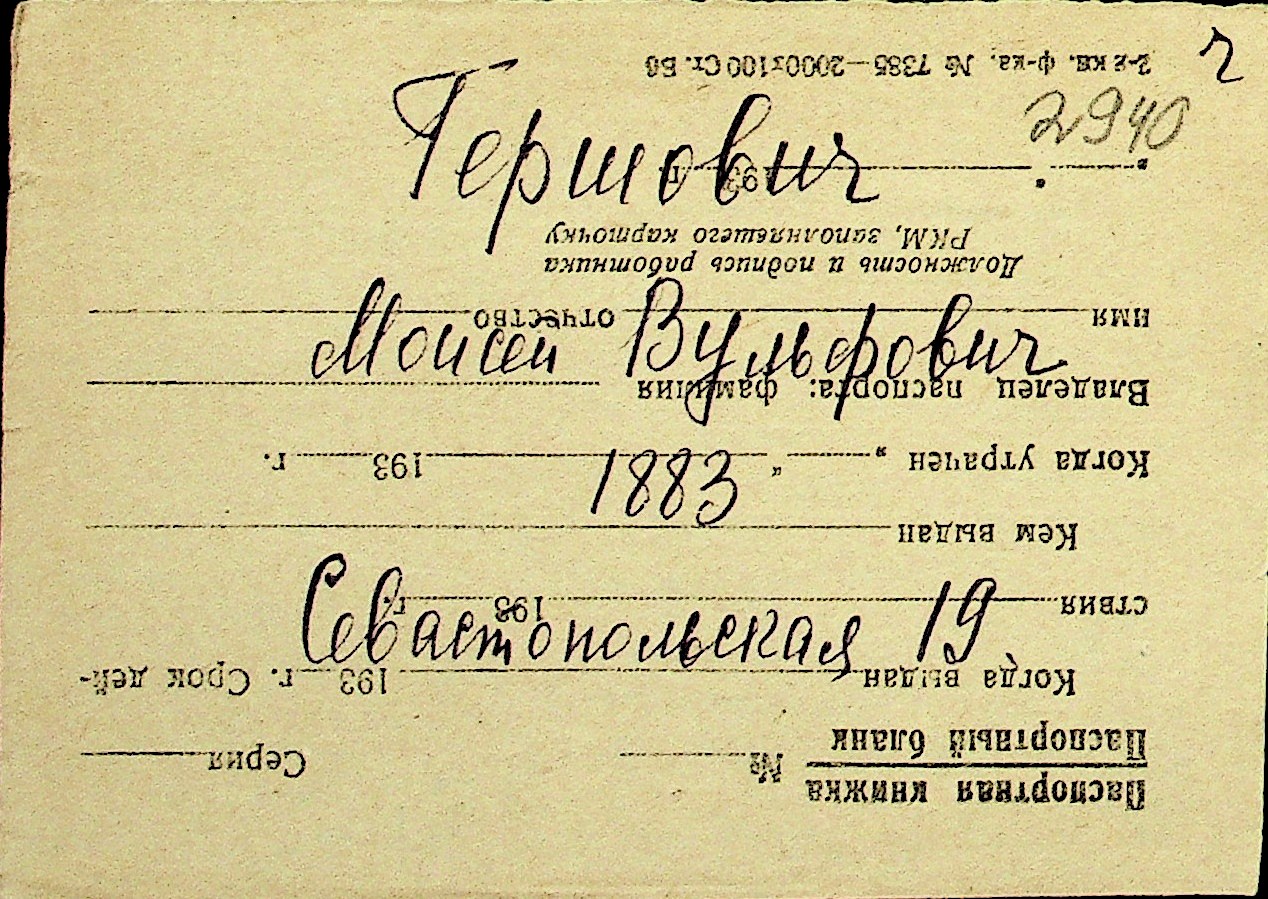 ч
2940
Гершович
Моисей Вульфович
1883
Севастопольская 19
Паспортная книжка
Паспортный бланк
№ Серия
Когда выдан 193 г. Срок дей-
ствия 193 г.
Кем выдан
Когда утрачен „ “ 193 г.
Владелец паспорта: фамилия
имя отчество
Должность и подпись работника
РКМ, заполнявшего карточку
„ “ 193 г.
2-я кв. ф-ка. № 7385—2000х100 Ст. Вб